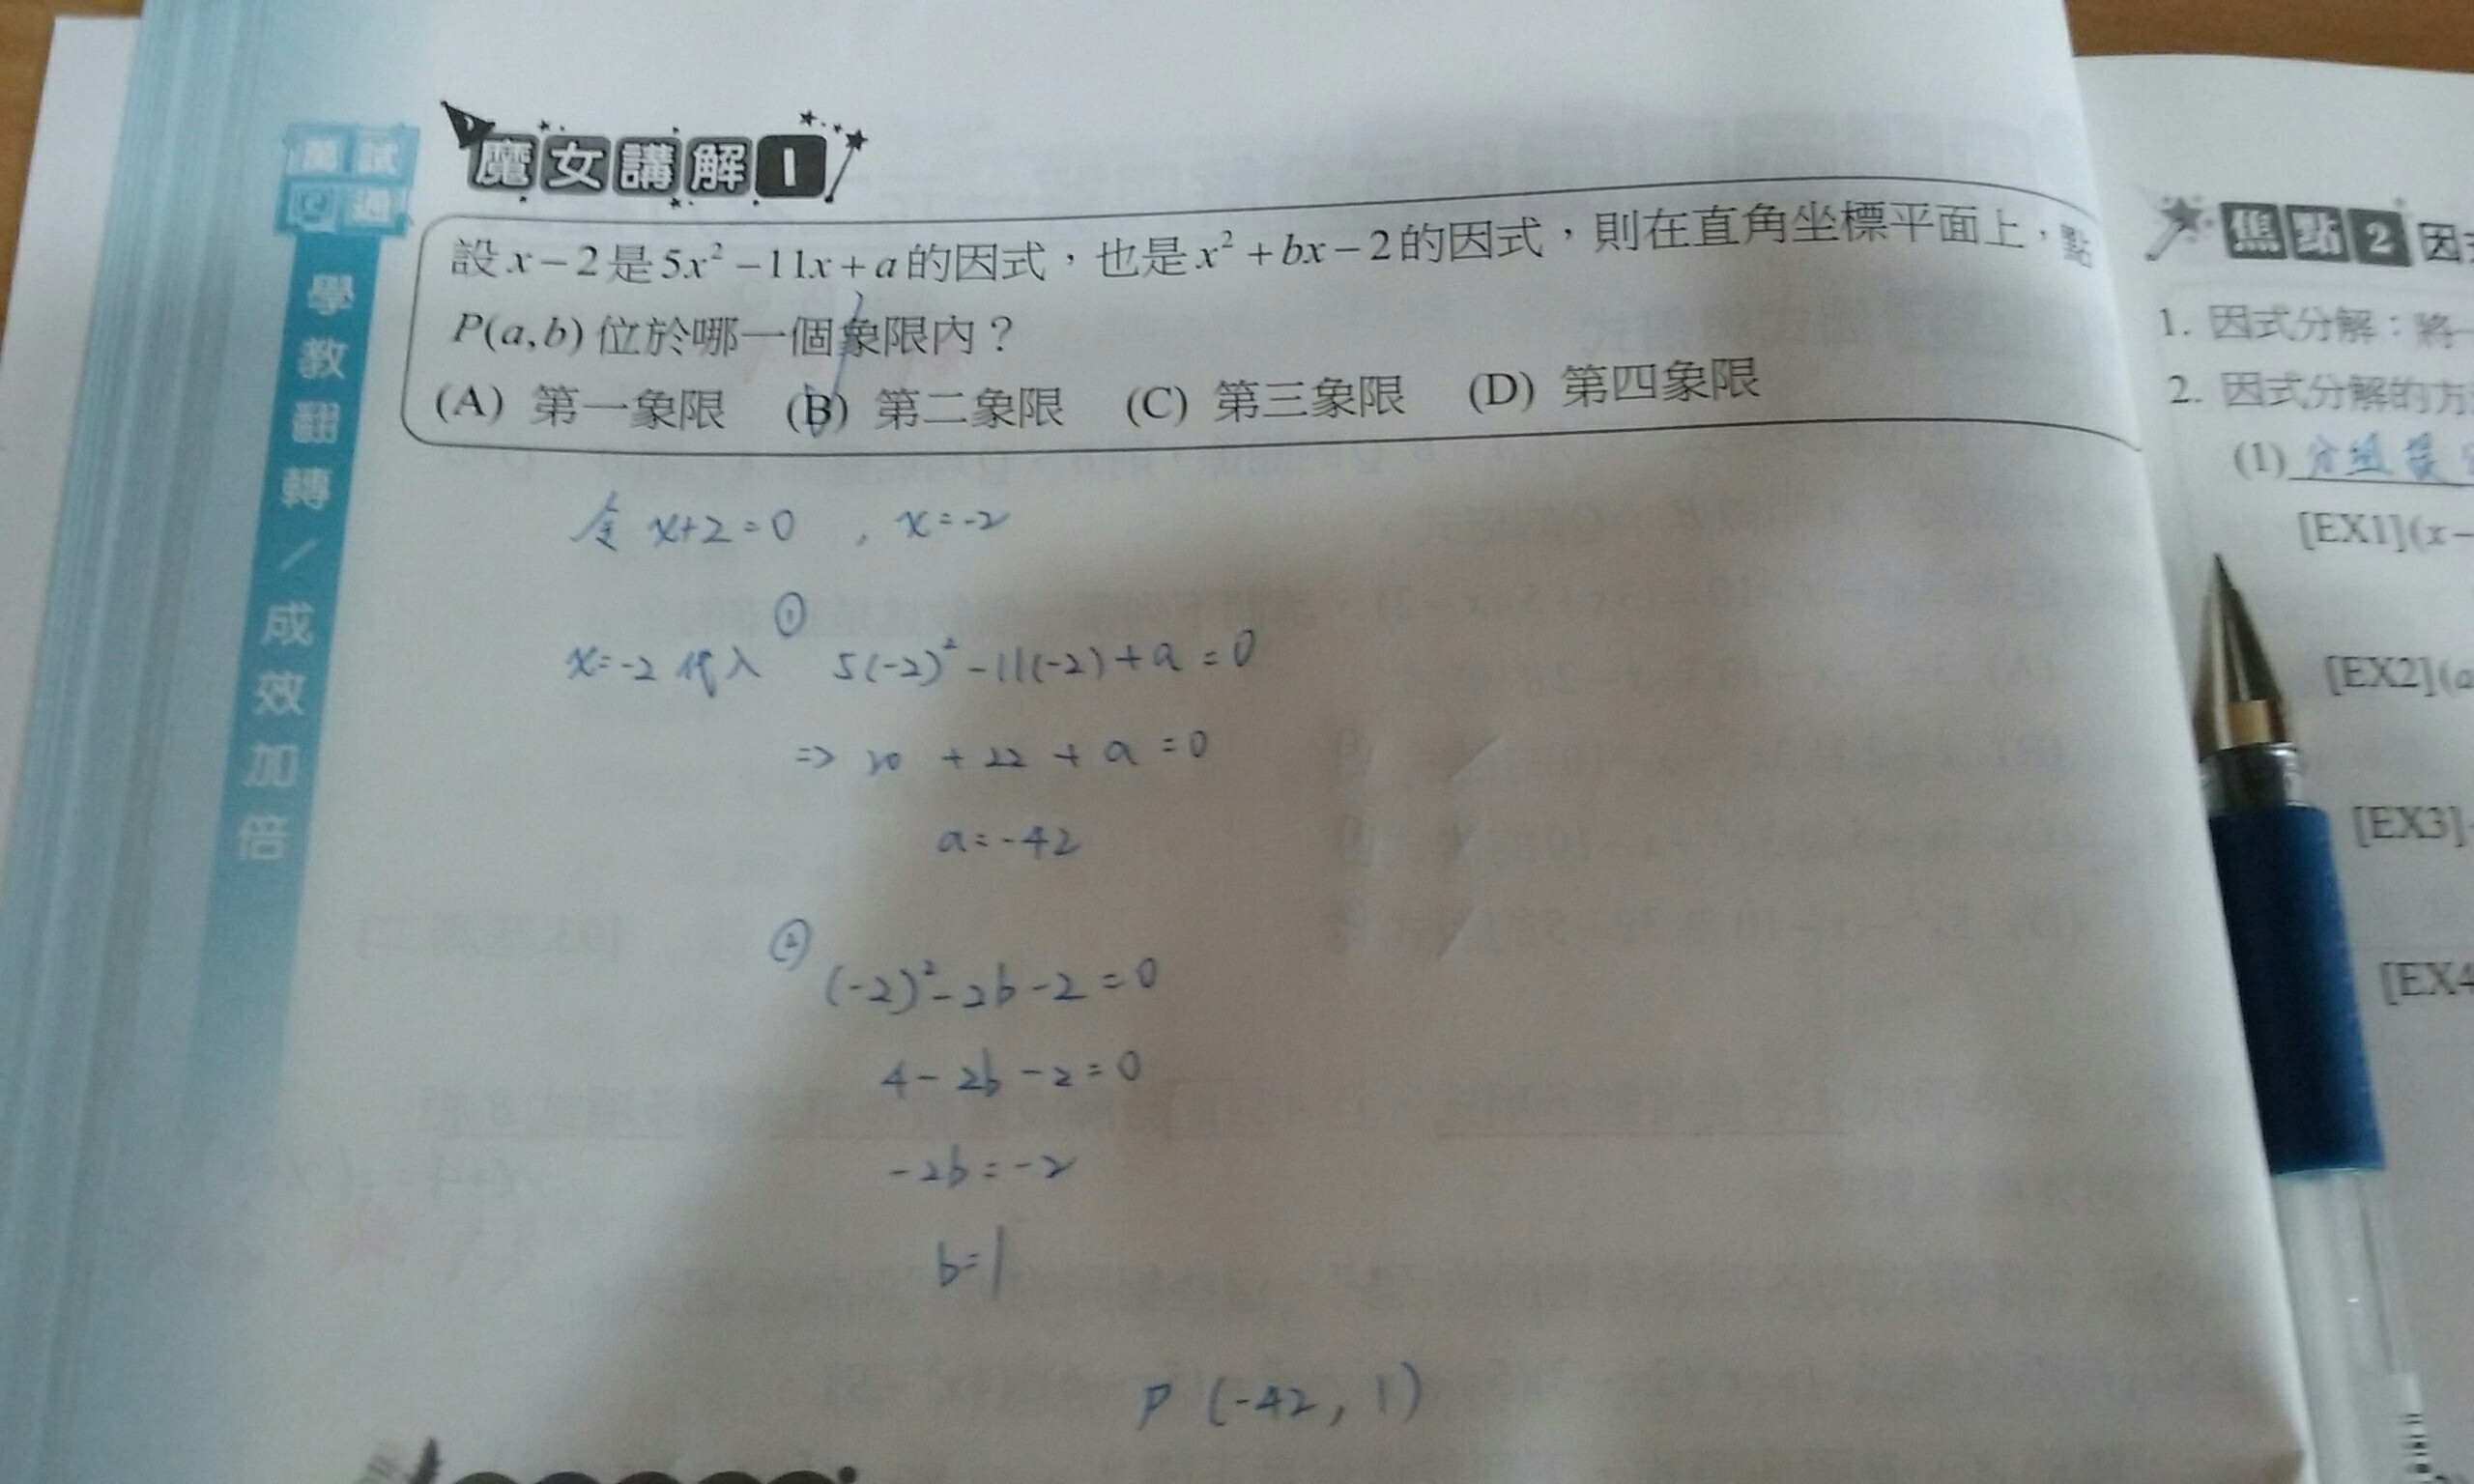 魔女講解1
設x-2是5x²-11x+a的因式,也是x²+bx-2的因式,則在直角坐標平面上,點
P(a,b)位於哪一個象限內?
(A) 第一象限 (B) 第二象限 (C) 第三象限 (D) 第四象限
令 x+2=0 , x=-2
①
x=-2 代入 5(-2)²-11(-2)+a=0
=> 20 + 22 + a =0
a=-42
②
(-2)²-2b-2=0
4-2b-2=0
-2b=-2
b=1
P (-42, 1)
學教翻轉/成效加倍
焦點2 因
1. 因式分解:將一
2. 因式分解的方
(1) 分組提
[EX1](x-
[EX2](a
[EX3]
[EX4